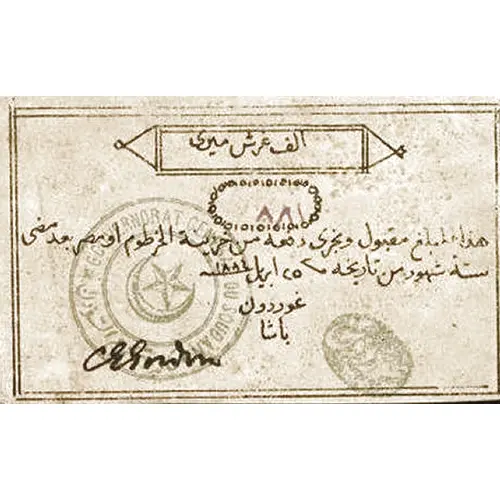 الف غرش ميري
٨٨١
هذا المبلغ مقبول وتجرى دفعه من خزينة الخرطوم او مصر بعد مضى
ستة شهور من تاريخه ٢٥ ابريل ١٨٨٤
غوردون
باشا
C E Gordon
GOUVERNORAT GENERAL DU SOUDAN